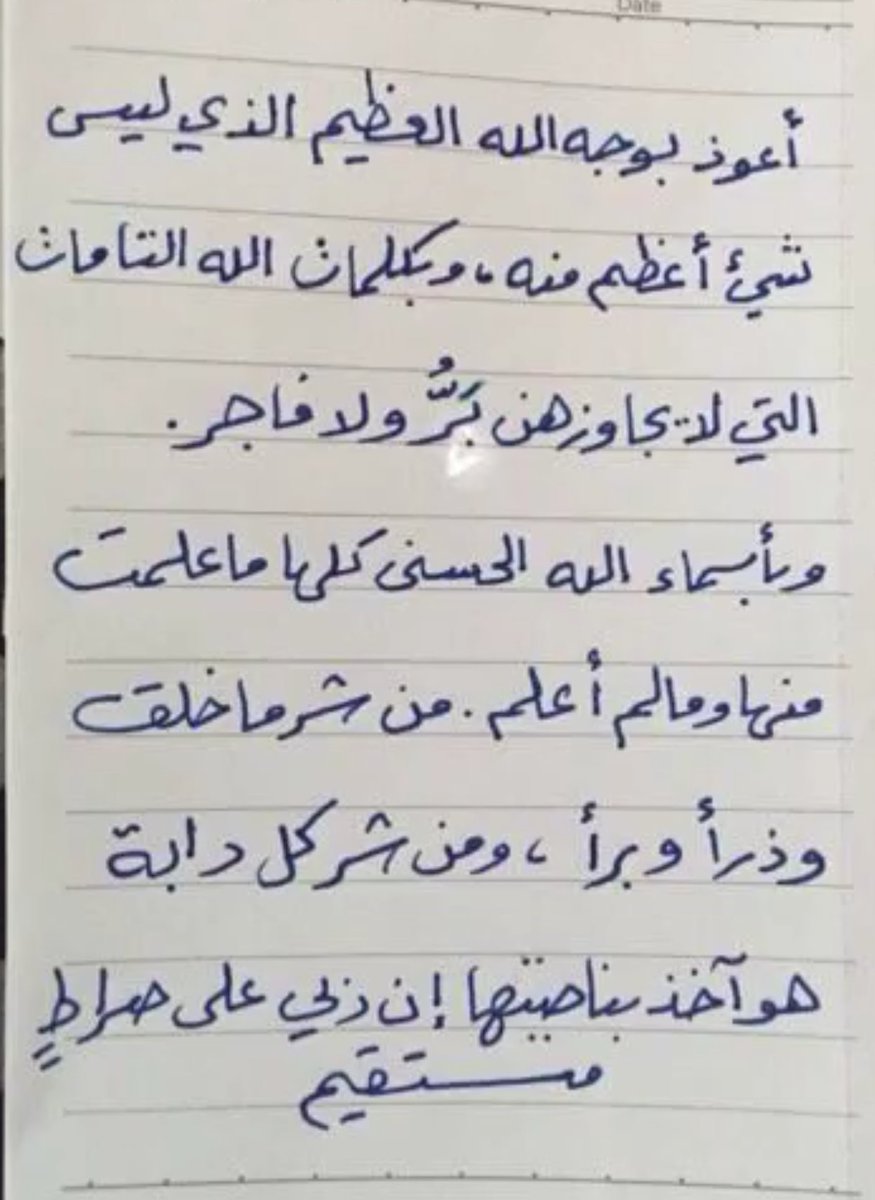 Date
أعوذ بوجه الله العظيم الذي ليس
شيئ أعظم منه، وبكلمات الله التامات
التي لا يجاوزهن بَرٌّ ولا فاجر.
وبأسماء الله الحسنى كلها ما علمت
منها وما لم أعلم. من شر ما خلق
وذرأ وبرأ، ومن شر كل دابة
هو آخذ بناصيتها إن ربي على صراطٍ
مستقيم